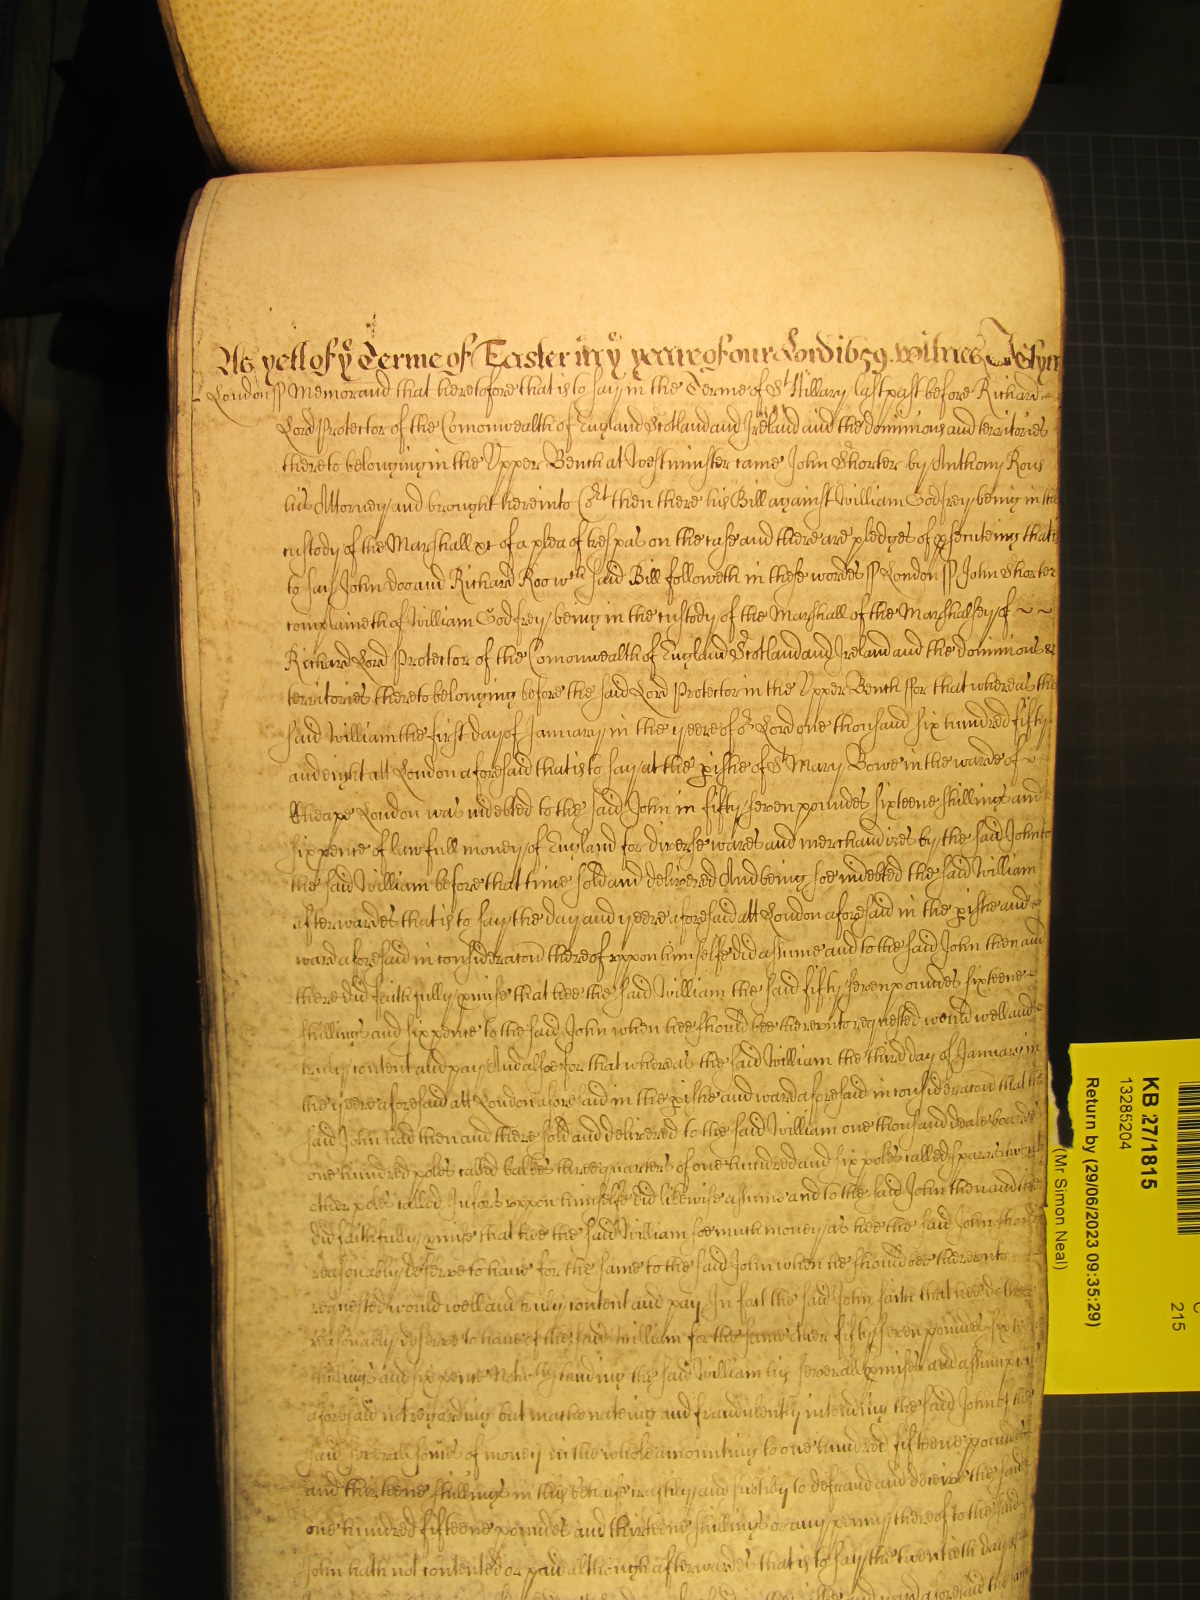 As yett of ye Terme of Easter in ye yeare of our Lord 1659. Witnes
London ss Memorand that heretofore that is to say in the Terme of St Hillary last past before Richard
Lord Protector of the Comonwealth of England Scotland and Ireland and the dominions and territories
thereto belonging in the Upper Bench at Westminster came John Shorter by Anthony Rous
his Attorney and brought here into Cort then there his Bill against William Godfrey being in the
custody of the Marshall &c of a plea of trespas on the case and there are pledges of psecuteing that is
to say John Doo and Richard Roo wch said Bill followeth in these wordes ss London ss John Shorter
complaineth of William Godfrey being in the custody of the Marshall of the Marshalsey of
Richard Lord Protector of the Comonwealth of England Scotland and Ireland and the dominions &
territories thereto belonging before the said Lord Protector in the Upper Bench For that whereas the
said William the first day of January in the yeere of or Lord one thousand six hundred fifty
and eight att London aforesaid that is to say at the pishe of St Mary Bowe in the warde of
Cheape London was indebted to the said John in fifty seven poundes sixteene shillings and
sixpence of lawfull money of England for diverse wares and merchandizes by the said John to
the said William before that time sold and delivered And being soe indebted the said William
afterwardes that is to say the day and yeere aforesaid att London aforesaid in the pishe and
ward aforesaid in consideracon thereof uppon himselfe did assume and to the said John then and
there did faithfully pmise that hee the said William the said fifty seven poundes sixteene
shillings and six pence to the said John when hee should bee thereunto requested would well and
truly content and pay And alsoe for that whereas the said William the third day of January in
the yeere aforesaid att London aforesaid in the pishe and ward aforesaid in consideracon that the
said John had then and there sold and delivered to the said William one thousand deale boardes
one hundred poles called balkes three quarters of one hundred and six poles called sparrs
other poles called uppon himselfe did likewise assume and to the said John then and there
did faithfully pmise that hee the said William soe much money as hee the said John should
reasonably deserve to have for the same to the said John when he should bee thereunto
requested would well and truly content and pay In fact the said John saith that hee
reasonably deserve to have of the said William for the same other fifty seven poundes
shillings and six pence Notwithstanding the said William his severall pmises and assumpcons
aforesaid not regarding but machionateing and fraudulently intending the said John of the
said severall somes of money in the whole amounting to one hundred fifteene poundes
and thirteene shillings in this behalfe craftily and subtilly to defraud and deceive the said
one hundred fifteene poundes and thirteene shillings or any penny thereof to the said
John hath not contented or paid although afterwardes that is to say the twentieth day of
ward aforesaid the
KB 27/1815
13285204
Return by (29/06/2023 09:35:29)
(Mr Simon Neal)
215